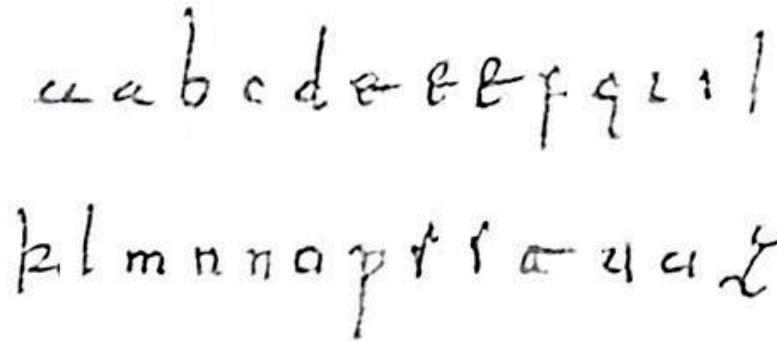 a a b c d e e e f g i i l
k l m n n o p r r t u u x